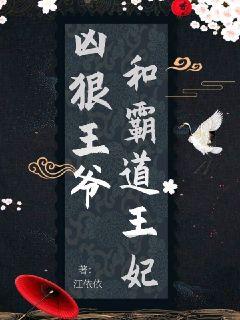 凶狠王爷
和霸道王妃
著：
江依依